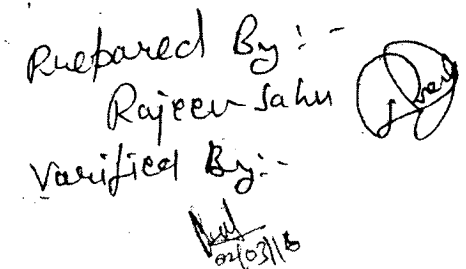 Prepared By:-
Rajeev Sahu
Varified By:-
02/03/16